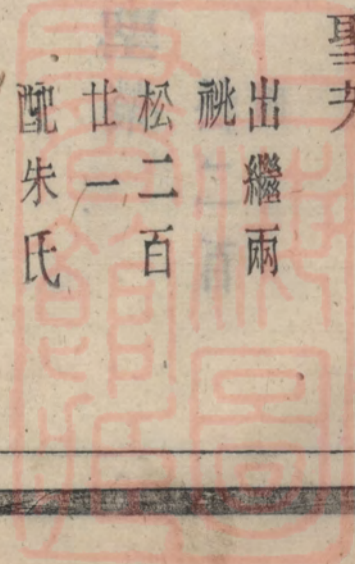 聖
出繼兩
祧
松二百
廿一
配朱氏